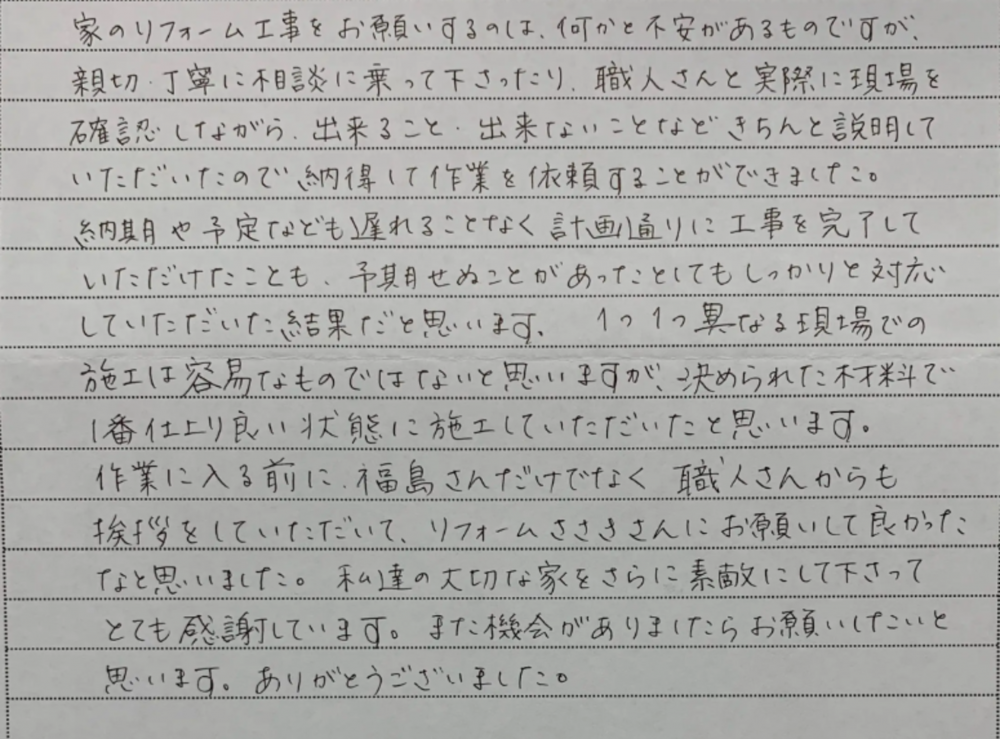 家のリフォーム工事をお願いするのは、何かと不安があるものですが、
親切・丁寧に相談に乗って下さったり、職人さんと実際に現場を
確認しながら、出来ること・出来ないことなどきちんと説明して
いただいたので納得して作業を依頼することができました。
納期や予定なども遅れることなく計画通りに工事を完了して
いただけたことも、予期せぬことがあったとしてもしっかりと対応
していただいた結果だと思います。 1つ1つ異なる現場での
施工は容易なものではないと思いますが、決められた材料で
1番仕上り良い状態に施工していただいたと思います。
作業に入る前に、福島さんだけでなく 職人さんからも
挨拶をしていただいて、リフォームささきさんにお願いして良かった
なと思いました。 私達の大切な家をさらに素敵にして下さって
とても感謝しています。また機会がありましたらお願いしたいと
思います。ありがとうございました。